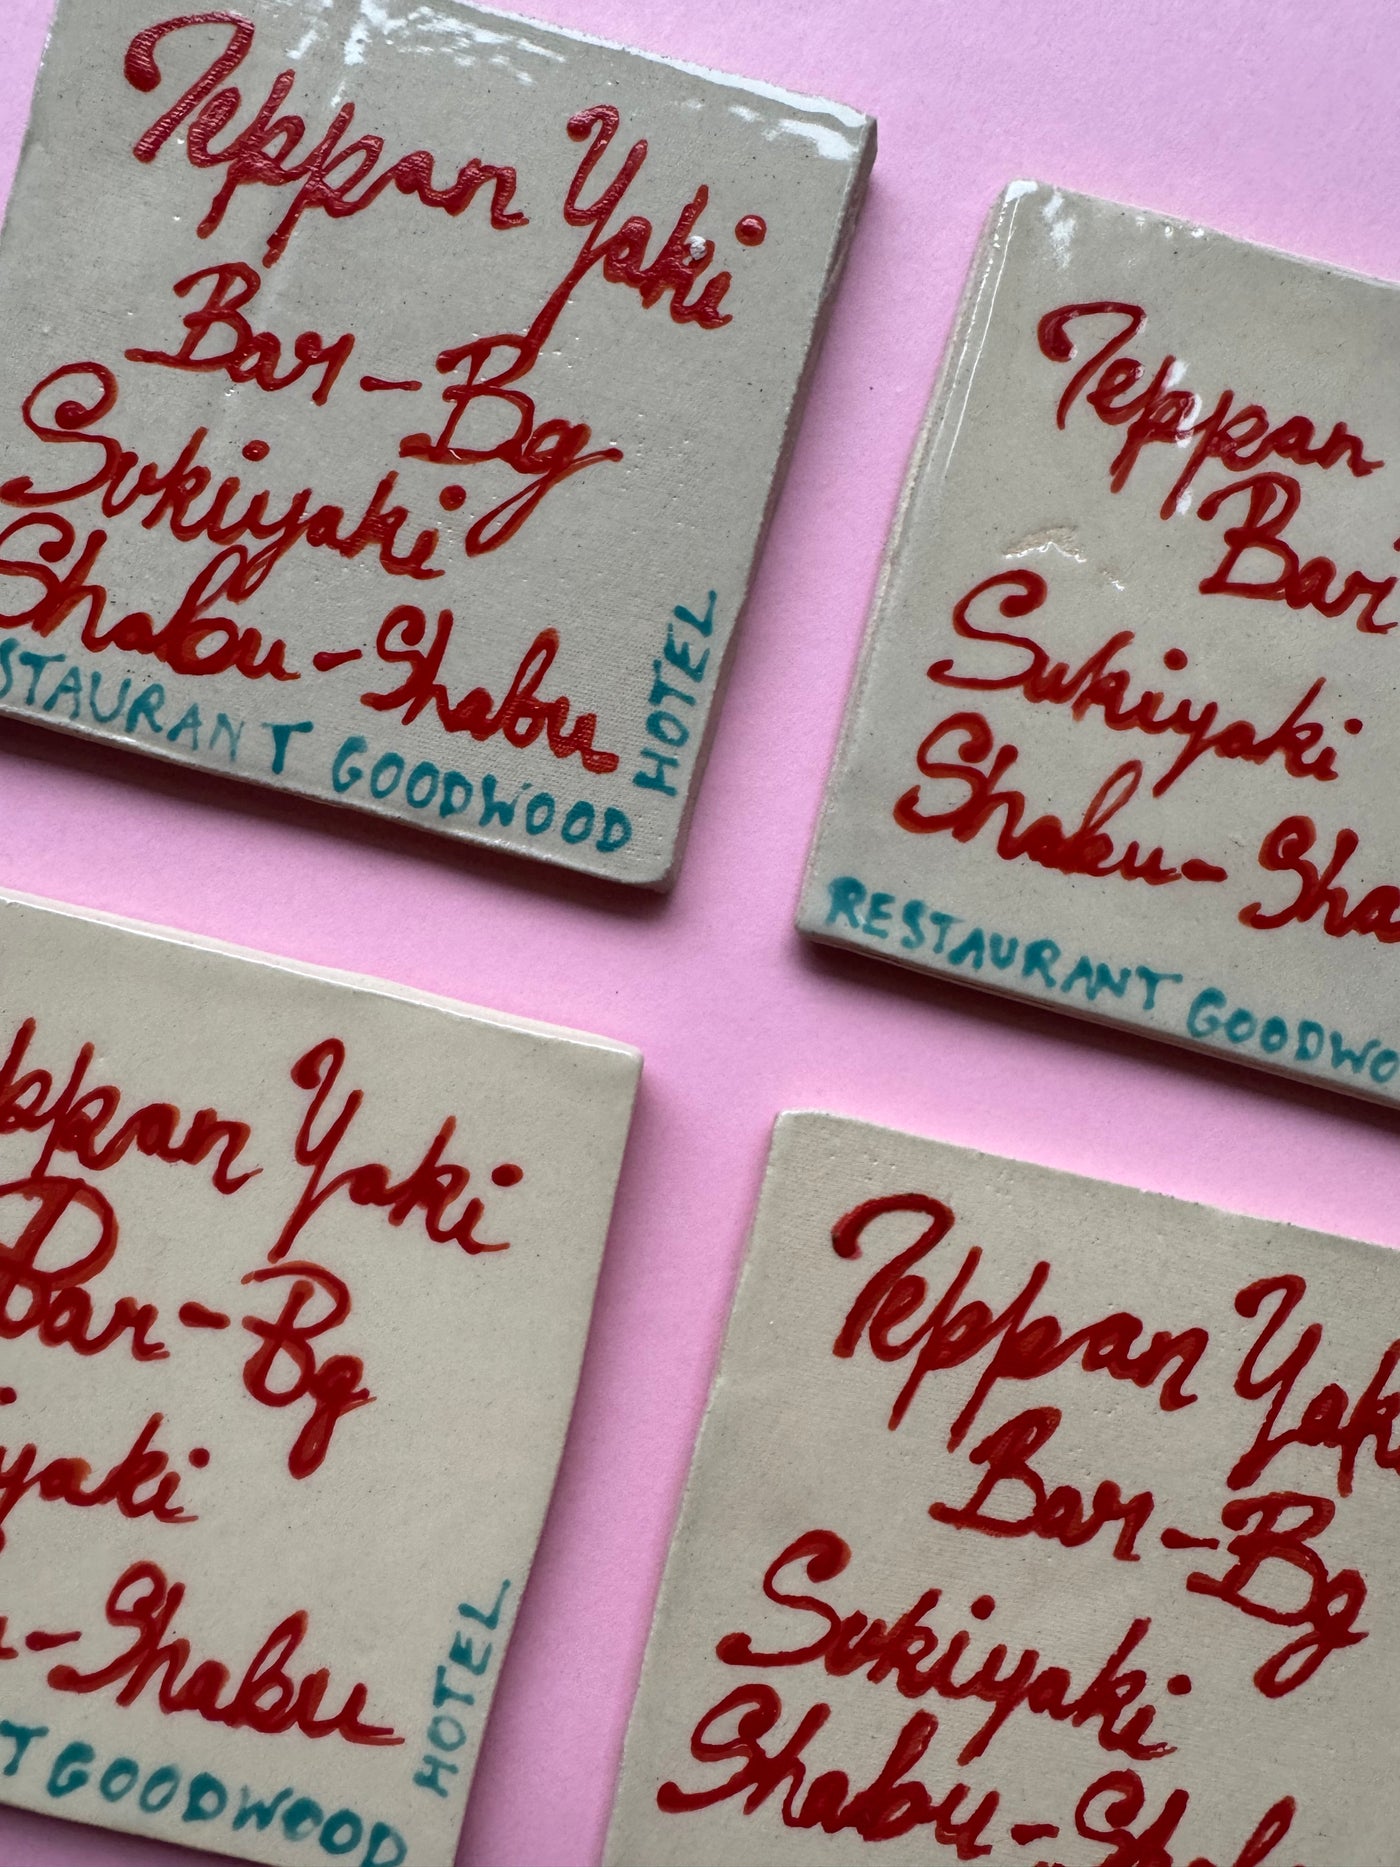 Teppan Yaki
Bar-Bg
Sukiyaki
Shabu-Shabu
STAURANT GOODWOOD
HOTEL
Teppan
Bar
Sukiyaki
Shabu-Sha
RESTAURANT GOODWOO
ppan Yaki
Bar-Bg
yaki
-Shabu
T GOODWOOD
HOTEL
Teppan Yak
Bar-Bg
Sukiyaki
Shabu-Shab